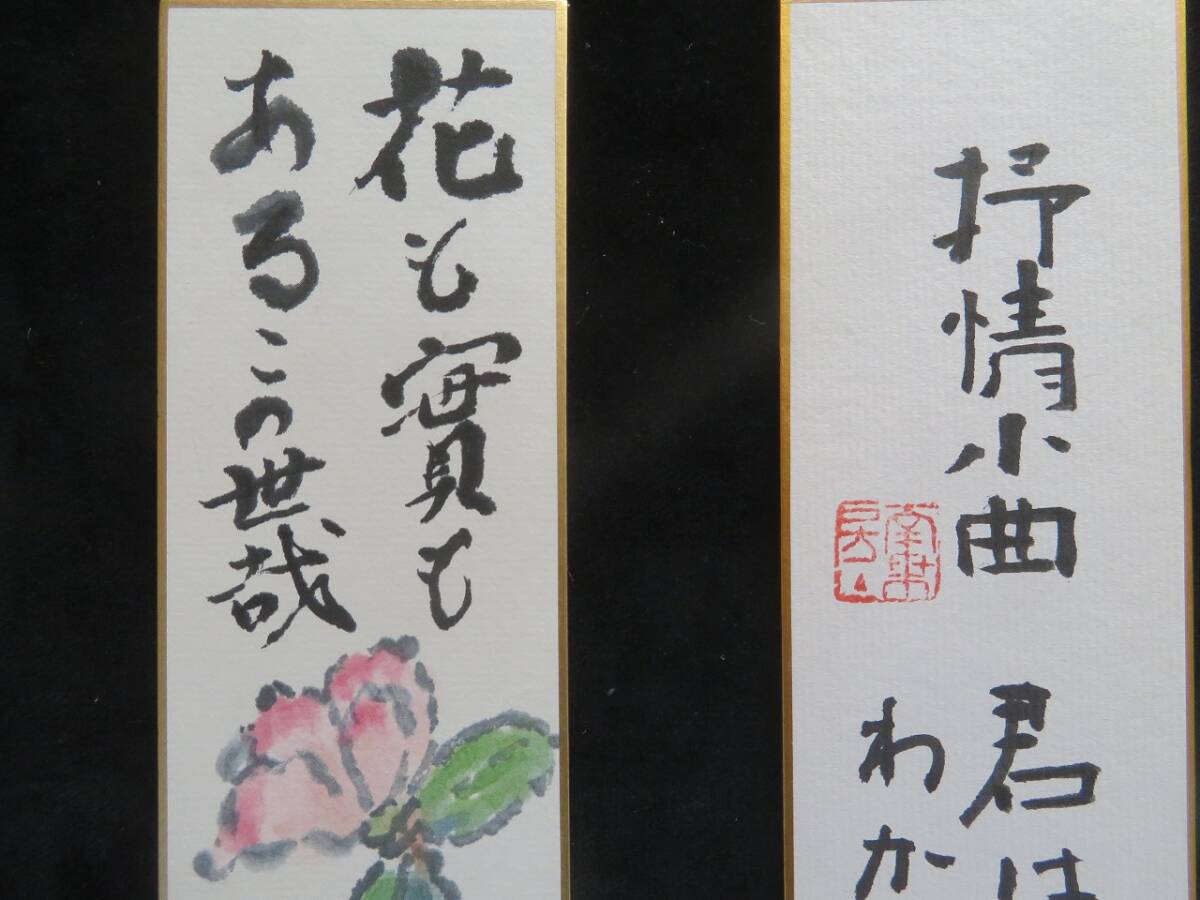 花も實も
ある この世哉
抒情小曲 君は
わか